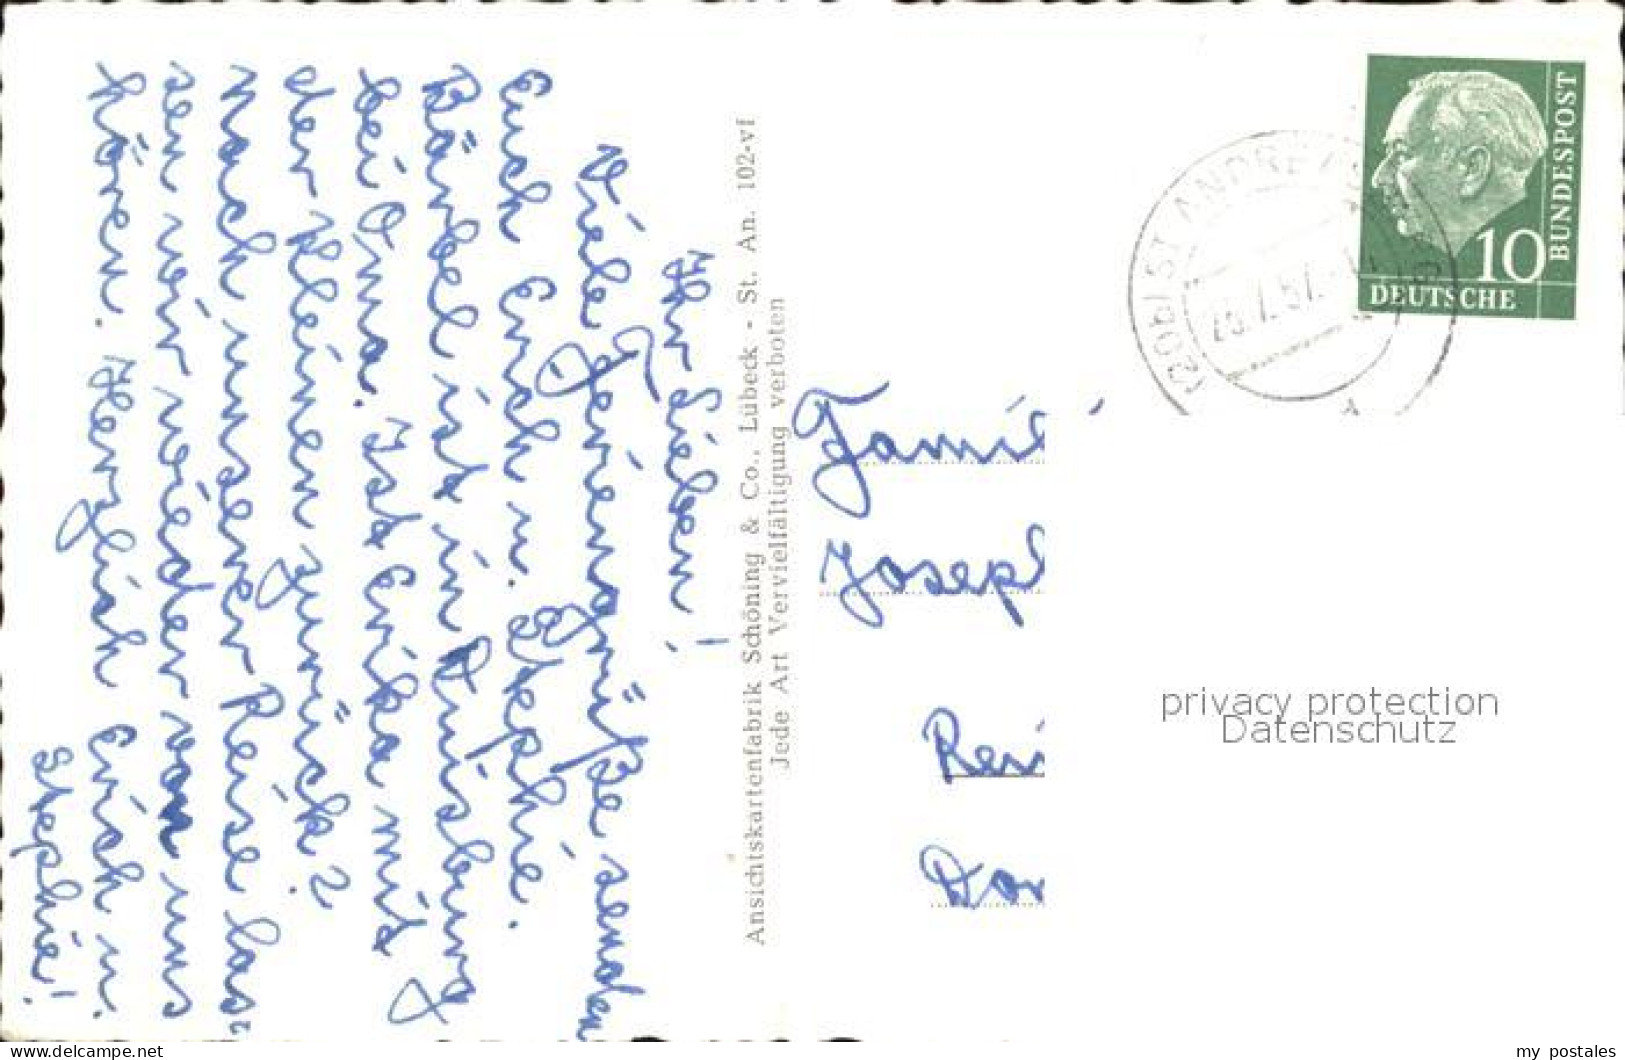 Ihr Lieben!
Viele Feriengrüße senden
Euch Erich u. Stephie.
Bärbel ist in Duisburg
bei Oma. Ist Erika mit
der kleinen zurück?
Nach unserer Reise las=
sen wir wieder von uns
hören. Herzlich Erich u.
Stephie!
Ansichtskartenfabrik Schöning & Co., Lübeck - St. An. 102-vf
Jede Art Vervielfältigung verboten
DEUTSCHE
BUNDESPOST
10
(20b) ST ANDRE
.7.57.
Fami
Josep
Rei
Dor
privacy protection
Datenschutz
https://www.delcampe.net
my_postales